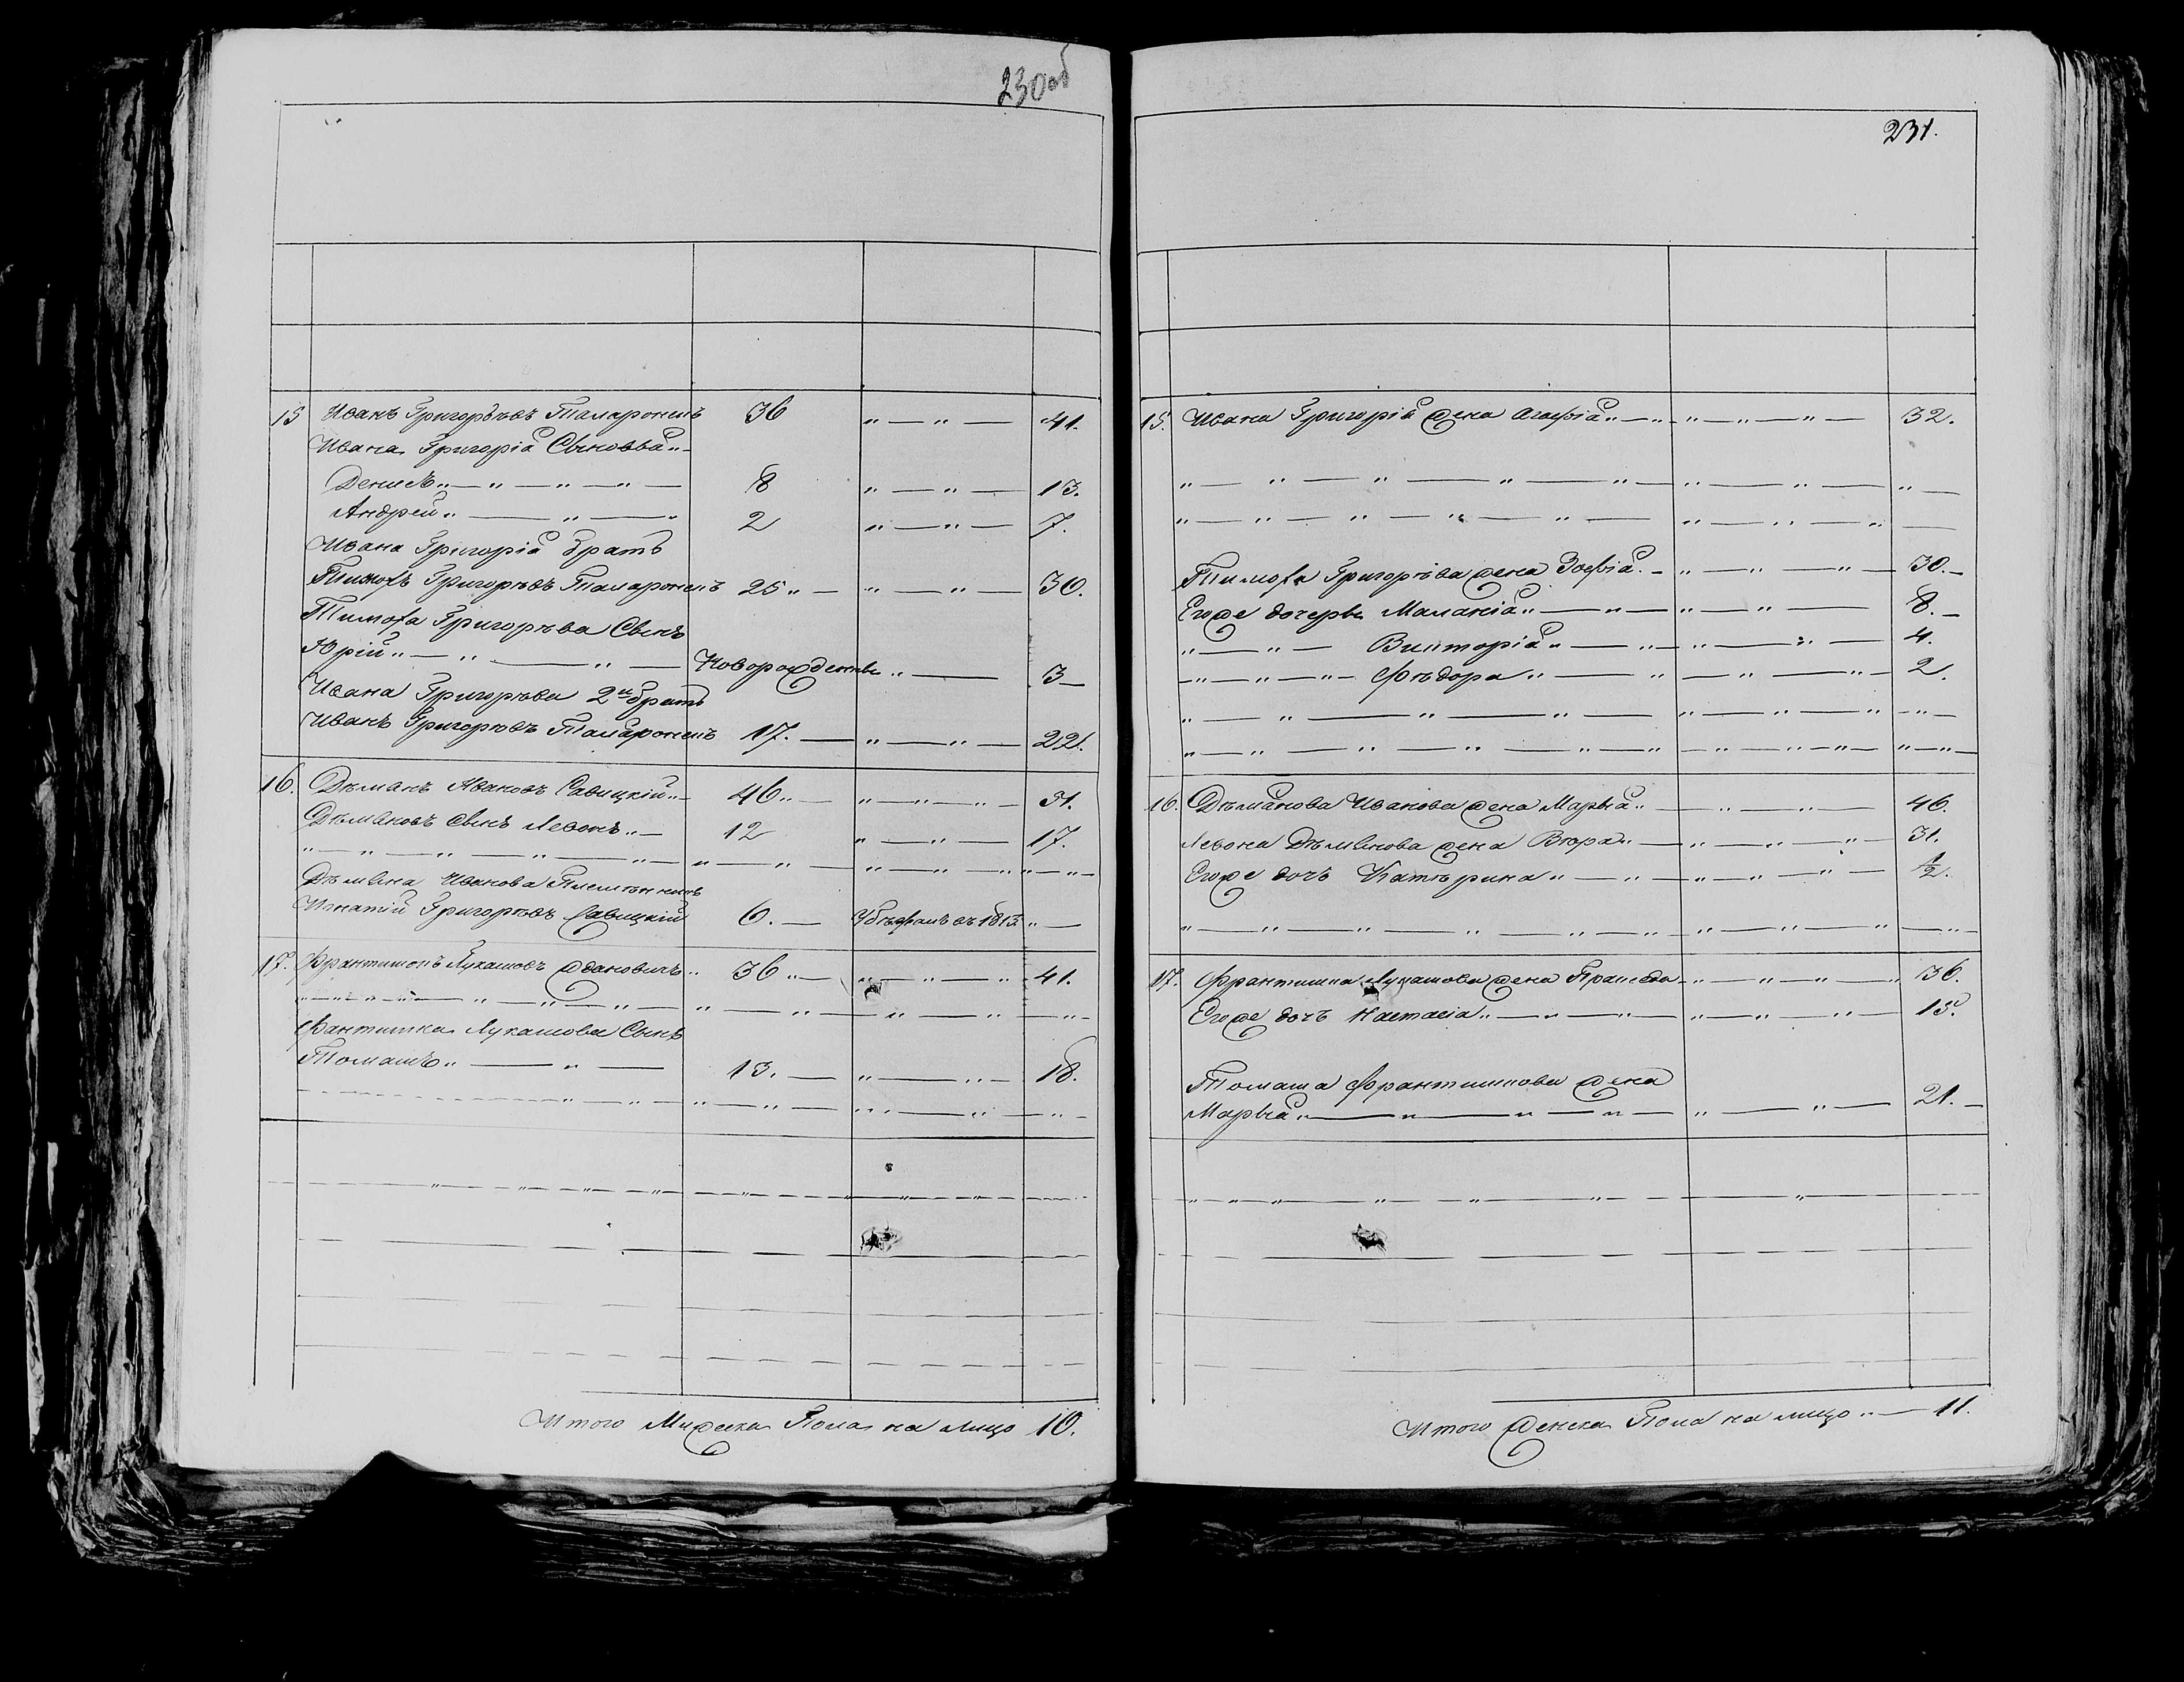 230об
15 Иванъ Григорьевъ Таларонекъ 36 41.
Ивана Григорія Сыновья
Денисъ 8 13.
Андрей 2 7.
Ивана Григорія братъ
Тимофъ Григорьевъ Таларонекъ 25 30.
Тимофа Григорьева Сынъ
Юрій Новорожденъ 3
Ивана Григорьева 2й братъ
Иванъ Григорьевъ Таларонекъ 17. 22.
16. Дѣманъ Ивановъ Савицкій 46 51.
Дѣмановъ Сынъ Левонъ 12 17.
Дѣмана Иванова Племянникъ
Игнатій Григорьевъ Савицкій 6. въ 1813
17. Лукашовъ Ждановичъ 36 41.
Франтишка Лукашова Сынъ
Томашъ 13. 18.
Итого Мужеска Пола на лицо 10.
231.
15. Ивана Григорія жена Агафія 32.
Тимофа Григорьева жена Зофія 30.
Егоже дочерьи Маланія 8.
Викторія 4.
Фѣдора 2.
16. Дѣманова Иванова жена Марья 46.
Левона Дѣманова жена 31.
Егоже дочъ Катѣрина 1/2.
17. Франтишка Лукашова жена 36.
Егоже дочъ Настасія 15.
Томаша Франтишкова жена
Марья 21.
Итого Женска Пола на лицо 11.